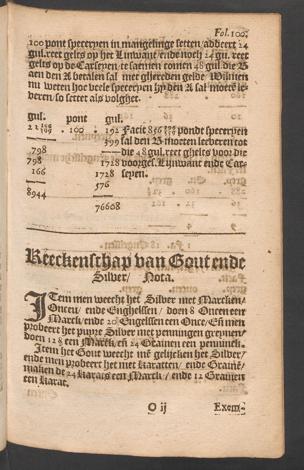 Fol. 100.
100 pont speceryen in mangelinge setten, addeert 24
gul. reet gelts op het Linwant/ ende noch 24 gul. reet
gelts op de Carseyen/ et saemen comen 48 gul. die B
aen den A betalen sal met ghereeden gelde Willmen
nu weten hoe veele speceryen hy den A sal moete le-
veren/ so settet als volghet.
gul. pont gul.
100 192 Facit 856 pondt speceryen
399 sal den B moeten leeveren/ tot
798 die 48 gul. reet ghelts voor die
798 1728 voorzeg. Lynwant ende Car-
166 1728 seyen.
8944 576
76608
Reeckenschap van Gout ende
Silver/ Nota.
ITem men weecht het Silver met Marcken/
Oncen/ ende Enghelssen/ doen 8 Oncen een
Marck/ ende 20 Engelssen een Once/ Eñ men
probeert het puyre Silver met penningen greynen/
doen 12 een Marck/ eñ 24 Greinen een penninck.
Item het Gout weecht mē gelijcken het Silver/
ende men probeert het met karatten/ ende Greinē/
maken de 24 karats een Marck/ ende 12 Greinen
een karat.
O ij Exem-